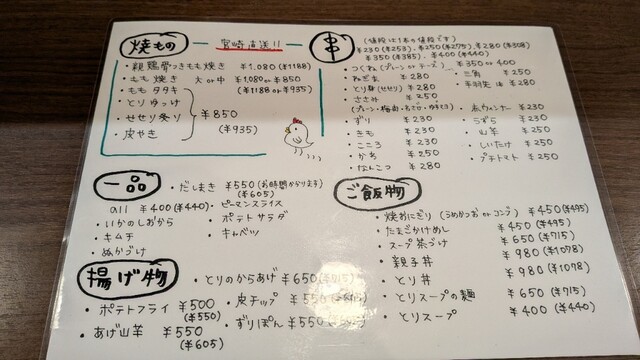 焼もの
宮崎直送!!
・親鶏骨つきもも焼き ¥1,080 (¥1188)
・もも焼き 大or中 ¥1,080or¥850
(¥1188or¥935)
・もも タタキ
・とりゆっけ
・せせり炙り
・皮やき
¥850
(¥935)
串
(値段は1本の値段です)
¥230(¥253)、¥250(¥275)、¥280(¥308)
¥350(¥385)、¥400(¥440)
・つくね(プレーンorチーズ) ¥350or400
・ねぎま ¥280
・とり身(せせり) ¥280
・ささみ ¥250
・ずり ¥230
・きも ¥230
・こころ ¥230
・かわ ¥250
・なんこつ ¥280
・三角 ¥250
・手羽先 ¥280
・赤ウィンナー ¥230
・うずら ¥230
・山芋 ¥250
・しいたけ ¥250
・プチトマト ¥250
一品
all ¥400(¥440)
・いかのしおから
・キムチ
・ぬかづけ
・だしまき ¥550(お時間かかります)
(¥605)
・ピーマンスライス
・ポテトサラダ
・キャベツ
ご飯物
・焼おにぎり(うめかつおorコンブ) ¥450(¥495)
・たまごかけめし ¥450(¥495)
・スープ茶づけ ¥650(¥715)
・親子丼 ¥980(¥1078)
・とり丼 ¥980(¥1078)
・とりスープの麺 ¥650(¥715)
・とりスープ ¥400(¥440)
揚げ物
・ポテトフライ ¥500
(¥550)
・あげ山芋 ¥550
(¥605)
・とりのからあげ ¥650(¥715)
・皮チップ ¥550
・ずりぽん ¥550